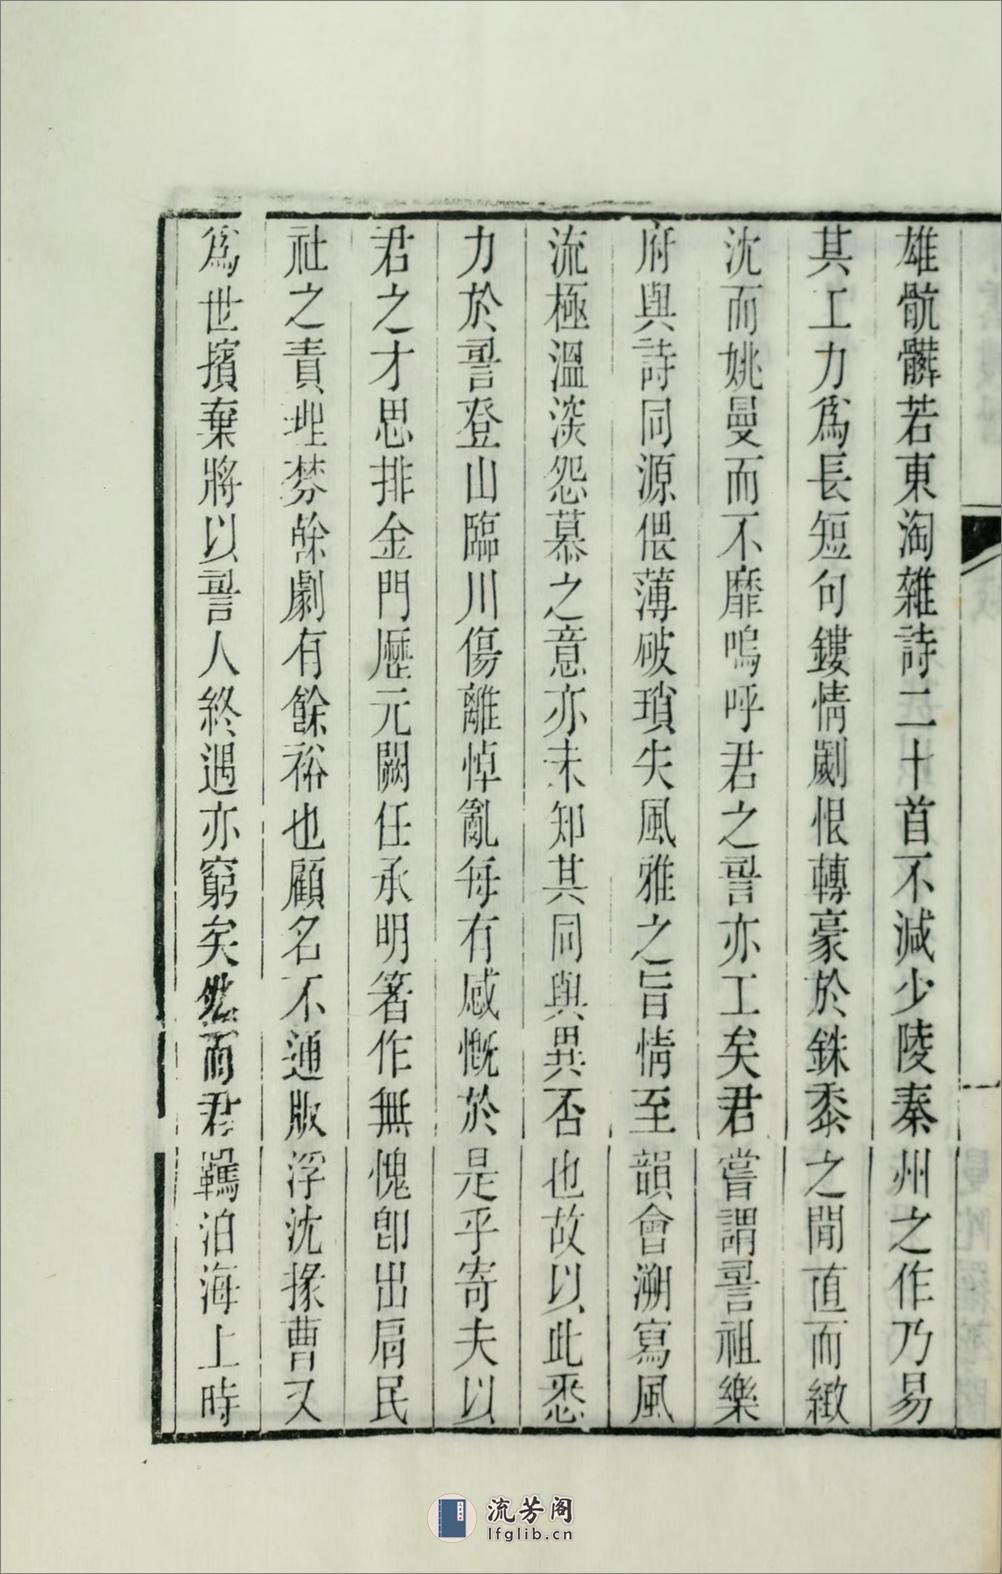 雄骯髒若東淘雜詩二十首不減少陵秦州之作乃易
其工力爲長短句鏤情劌恨轉豪於銖黍之閒直而緻
沈而姚曼而不靡嗚呼君之㖠亦工矣君嘗謂㖠祖樂
府與詩同源偎薄破瑣失風雅之旨情至韻會溯寫風
流極溫深怨慕之意亦未知其同與異否也故以此悉
力於㖠登山臨川傷離悼亂每有感慨於是乎寄夫以
君之才思排金門歷元闕任承明箸作無愧卽出肩民
社之責理棼餘劇有餘裕也顧名不通版浮沈掾曹又
爲世擯棄將以㖠人終遇亦窮矣然而君羈泊海上時
流芳阁
lfglib.cn